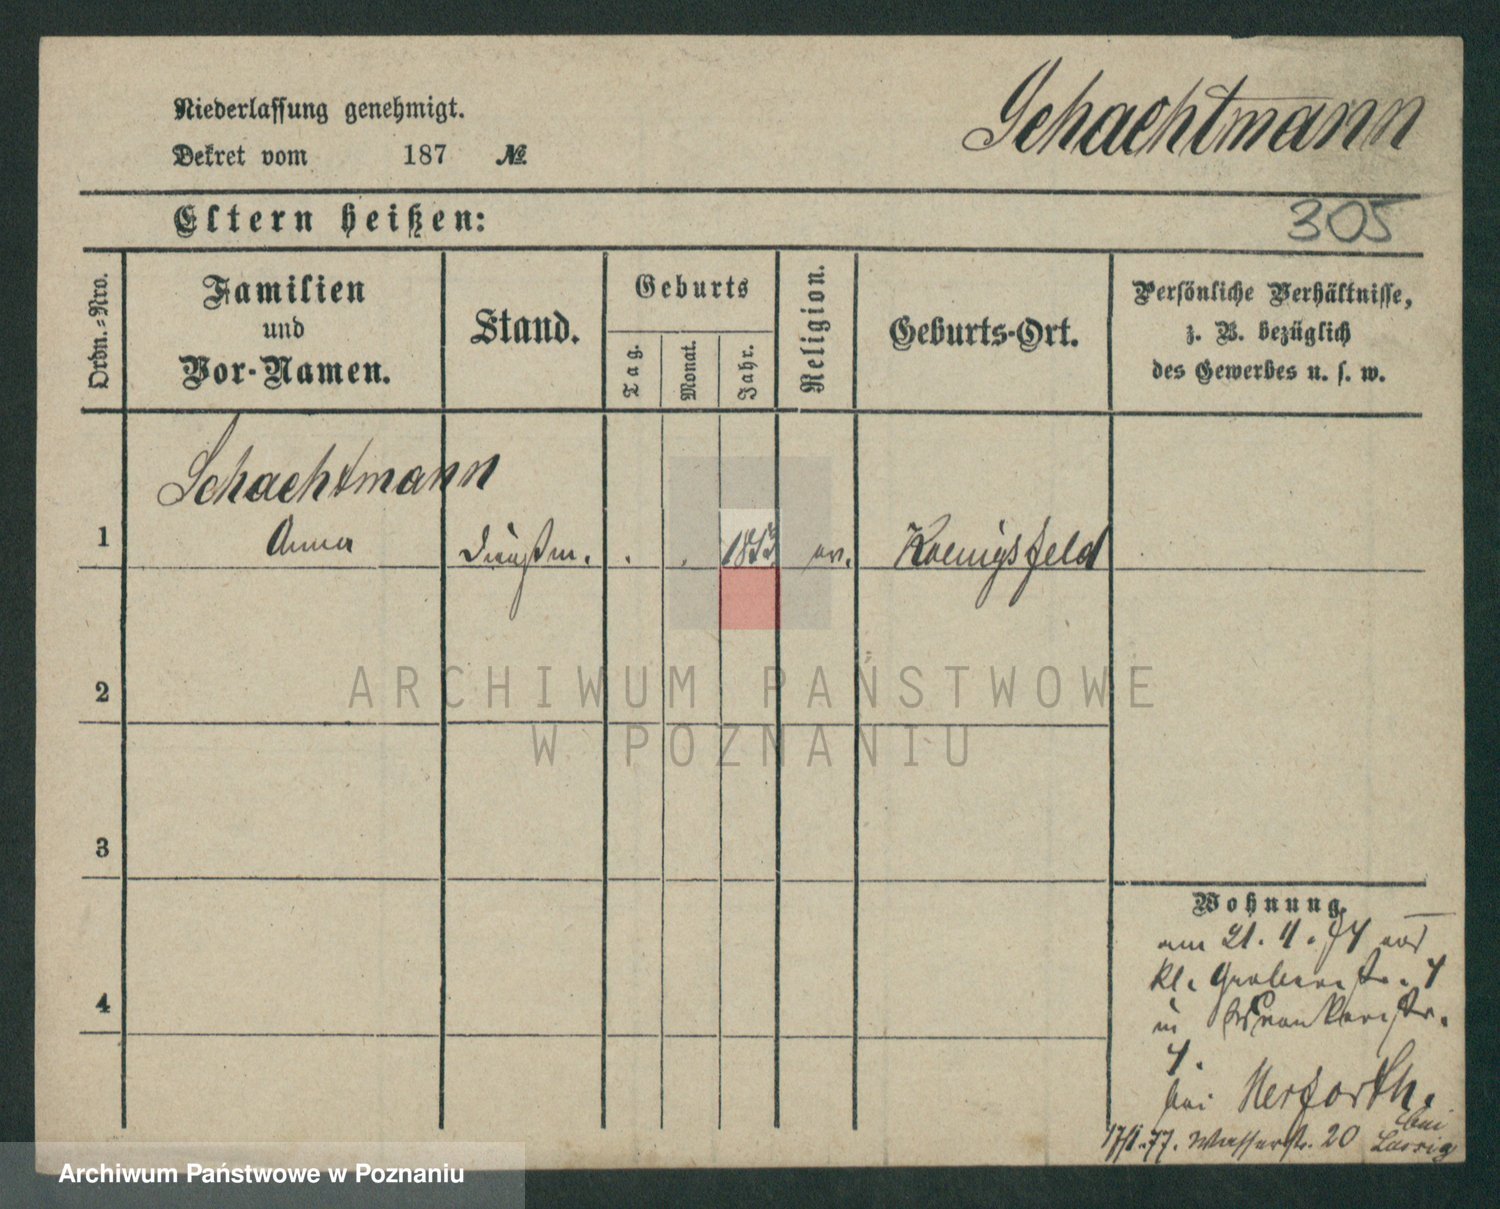 Niederlassung genehmigt.
Dekret vom 187 №
Schachtmann
Eltern heißen:
305
Ordn.-Nro.
Familien
und
Vor-Namen.
Stand.
Geburts
Tag.
Monat.
Jahr.
Religion.
Geburts-Ort.
Persönliche Verhältnisse,
z. B. bezüglich
des Gewerbes u. s. w.
Schachtmann
1 Anna Dienstm. . . 1853 ev. Koenigsfeld
ARCHIWUM PAŃSTWOWE
2
W POZNANIU
3
Wohnung
am 21. 4. 74 aus
kl. Gerberstr. 4
4
in
4.
bei Herforth.
bei
17/1.77. Wasserstr. 20
Archiwum Państwowe w Poznaniu